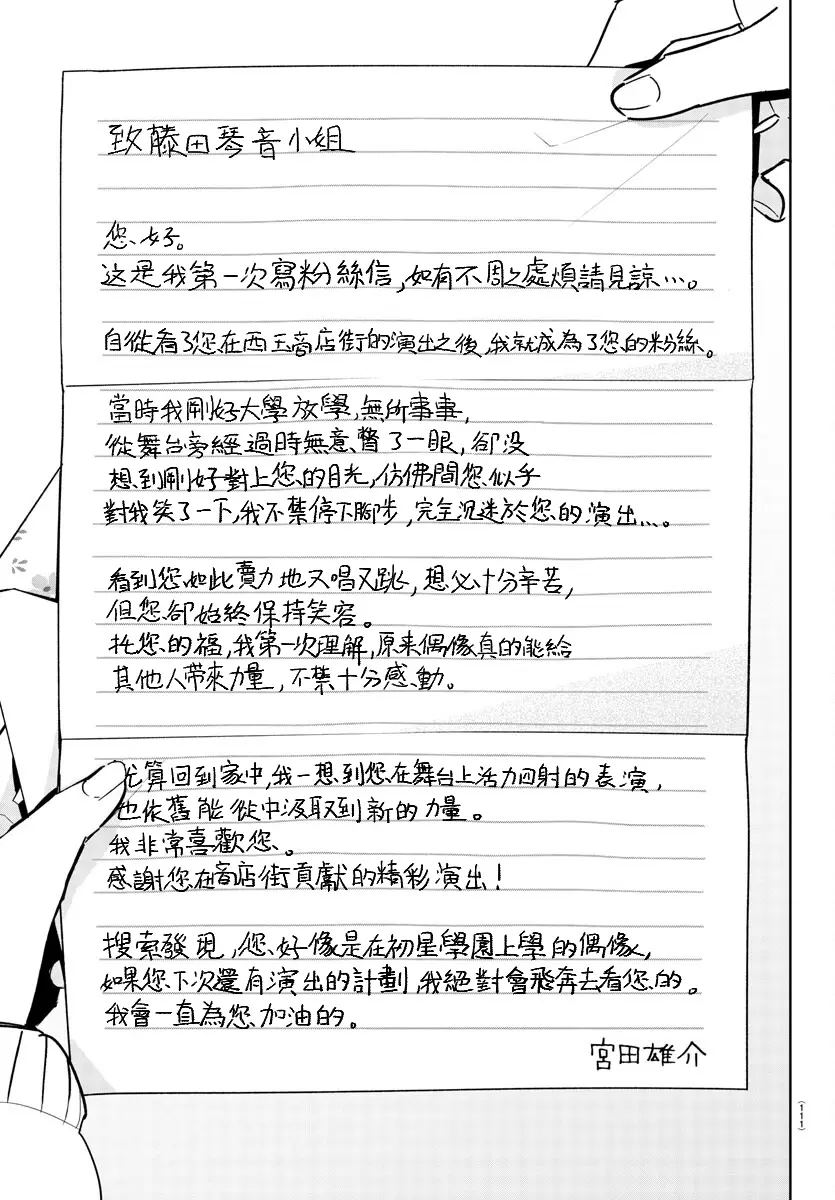 致藤田琴音小姐
您好。
这是我第一次寫粉絲信,如有不周之處煩請見諒…。
自從看了您在西玉商店街的演出之後,我就成為了您的粉絲。
當時我剛好大學放學,無所事事,
從舞台旁經過時無意瞥了一眼,卻没
想到剛好對上您的目光,仿佛間您似乎
對我笑了一下,我不禁停下腳步,完全沉迷於您的演出…。
看到您如此賣力地又唱又跳,想必十分辛苦,
但您卻始終保持笑容。
托您的福,我第一次理解,原来偶像真的能給
其他人帶來力量,不禁十分感動。
尤算回到家中,我一想到您在舞台上活力四射的表演,
也依舊能從中汲取到新的力量。
我非常喜歡您。
感謝您在商店街貢獻的精彩演出!
搜索發現,您好像是在初星學園上學的偶像,
如果您下次還有演出的計劃,我絕對會飛奔去看您的。
我會一直為您加油的。
宮田雄介
(111)